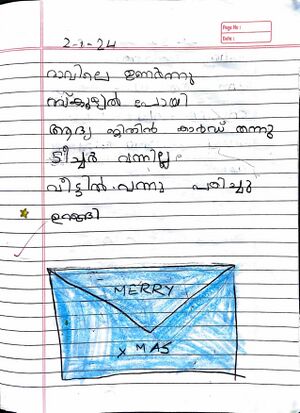 Page No :
Date :
2-1-24
രാവിലെ ഉണർന്നു
സ്കൂളിൽ പോയി
ആദ്യ ജിതിൻ കാർഡ് തന്നു
ടീച്ചർ വന്നില്ല
വീട്ടിൽ വന്നു പഠിച്ചു
ഉറങ്ങി
MERRY
X MAS